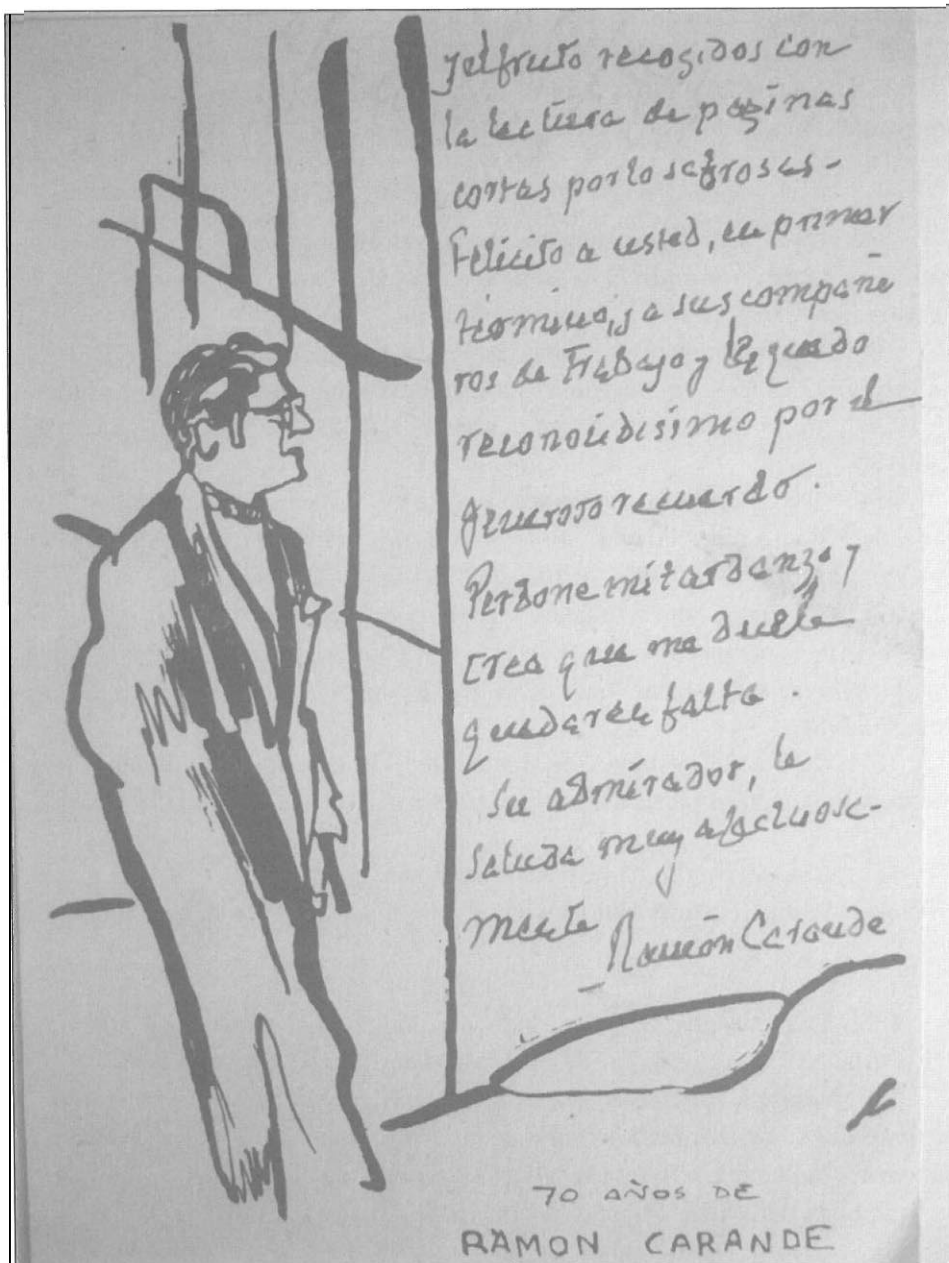 y el fruto recogidos con
la lectura de paginas
cortas por lo sabrosas-
Felicito a usted, en primer
término, y a sus compañe
ros de Trabajo y le quedo
reconocidisimo por el
generoso recuerdo.
Perdone mi tardanza y
crea que me duele
quedar en falta.
Su admirador, le
saluda muy afectuosa-
mente Ramón Carande
70 AÑOS DE
RAMON CARANDE